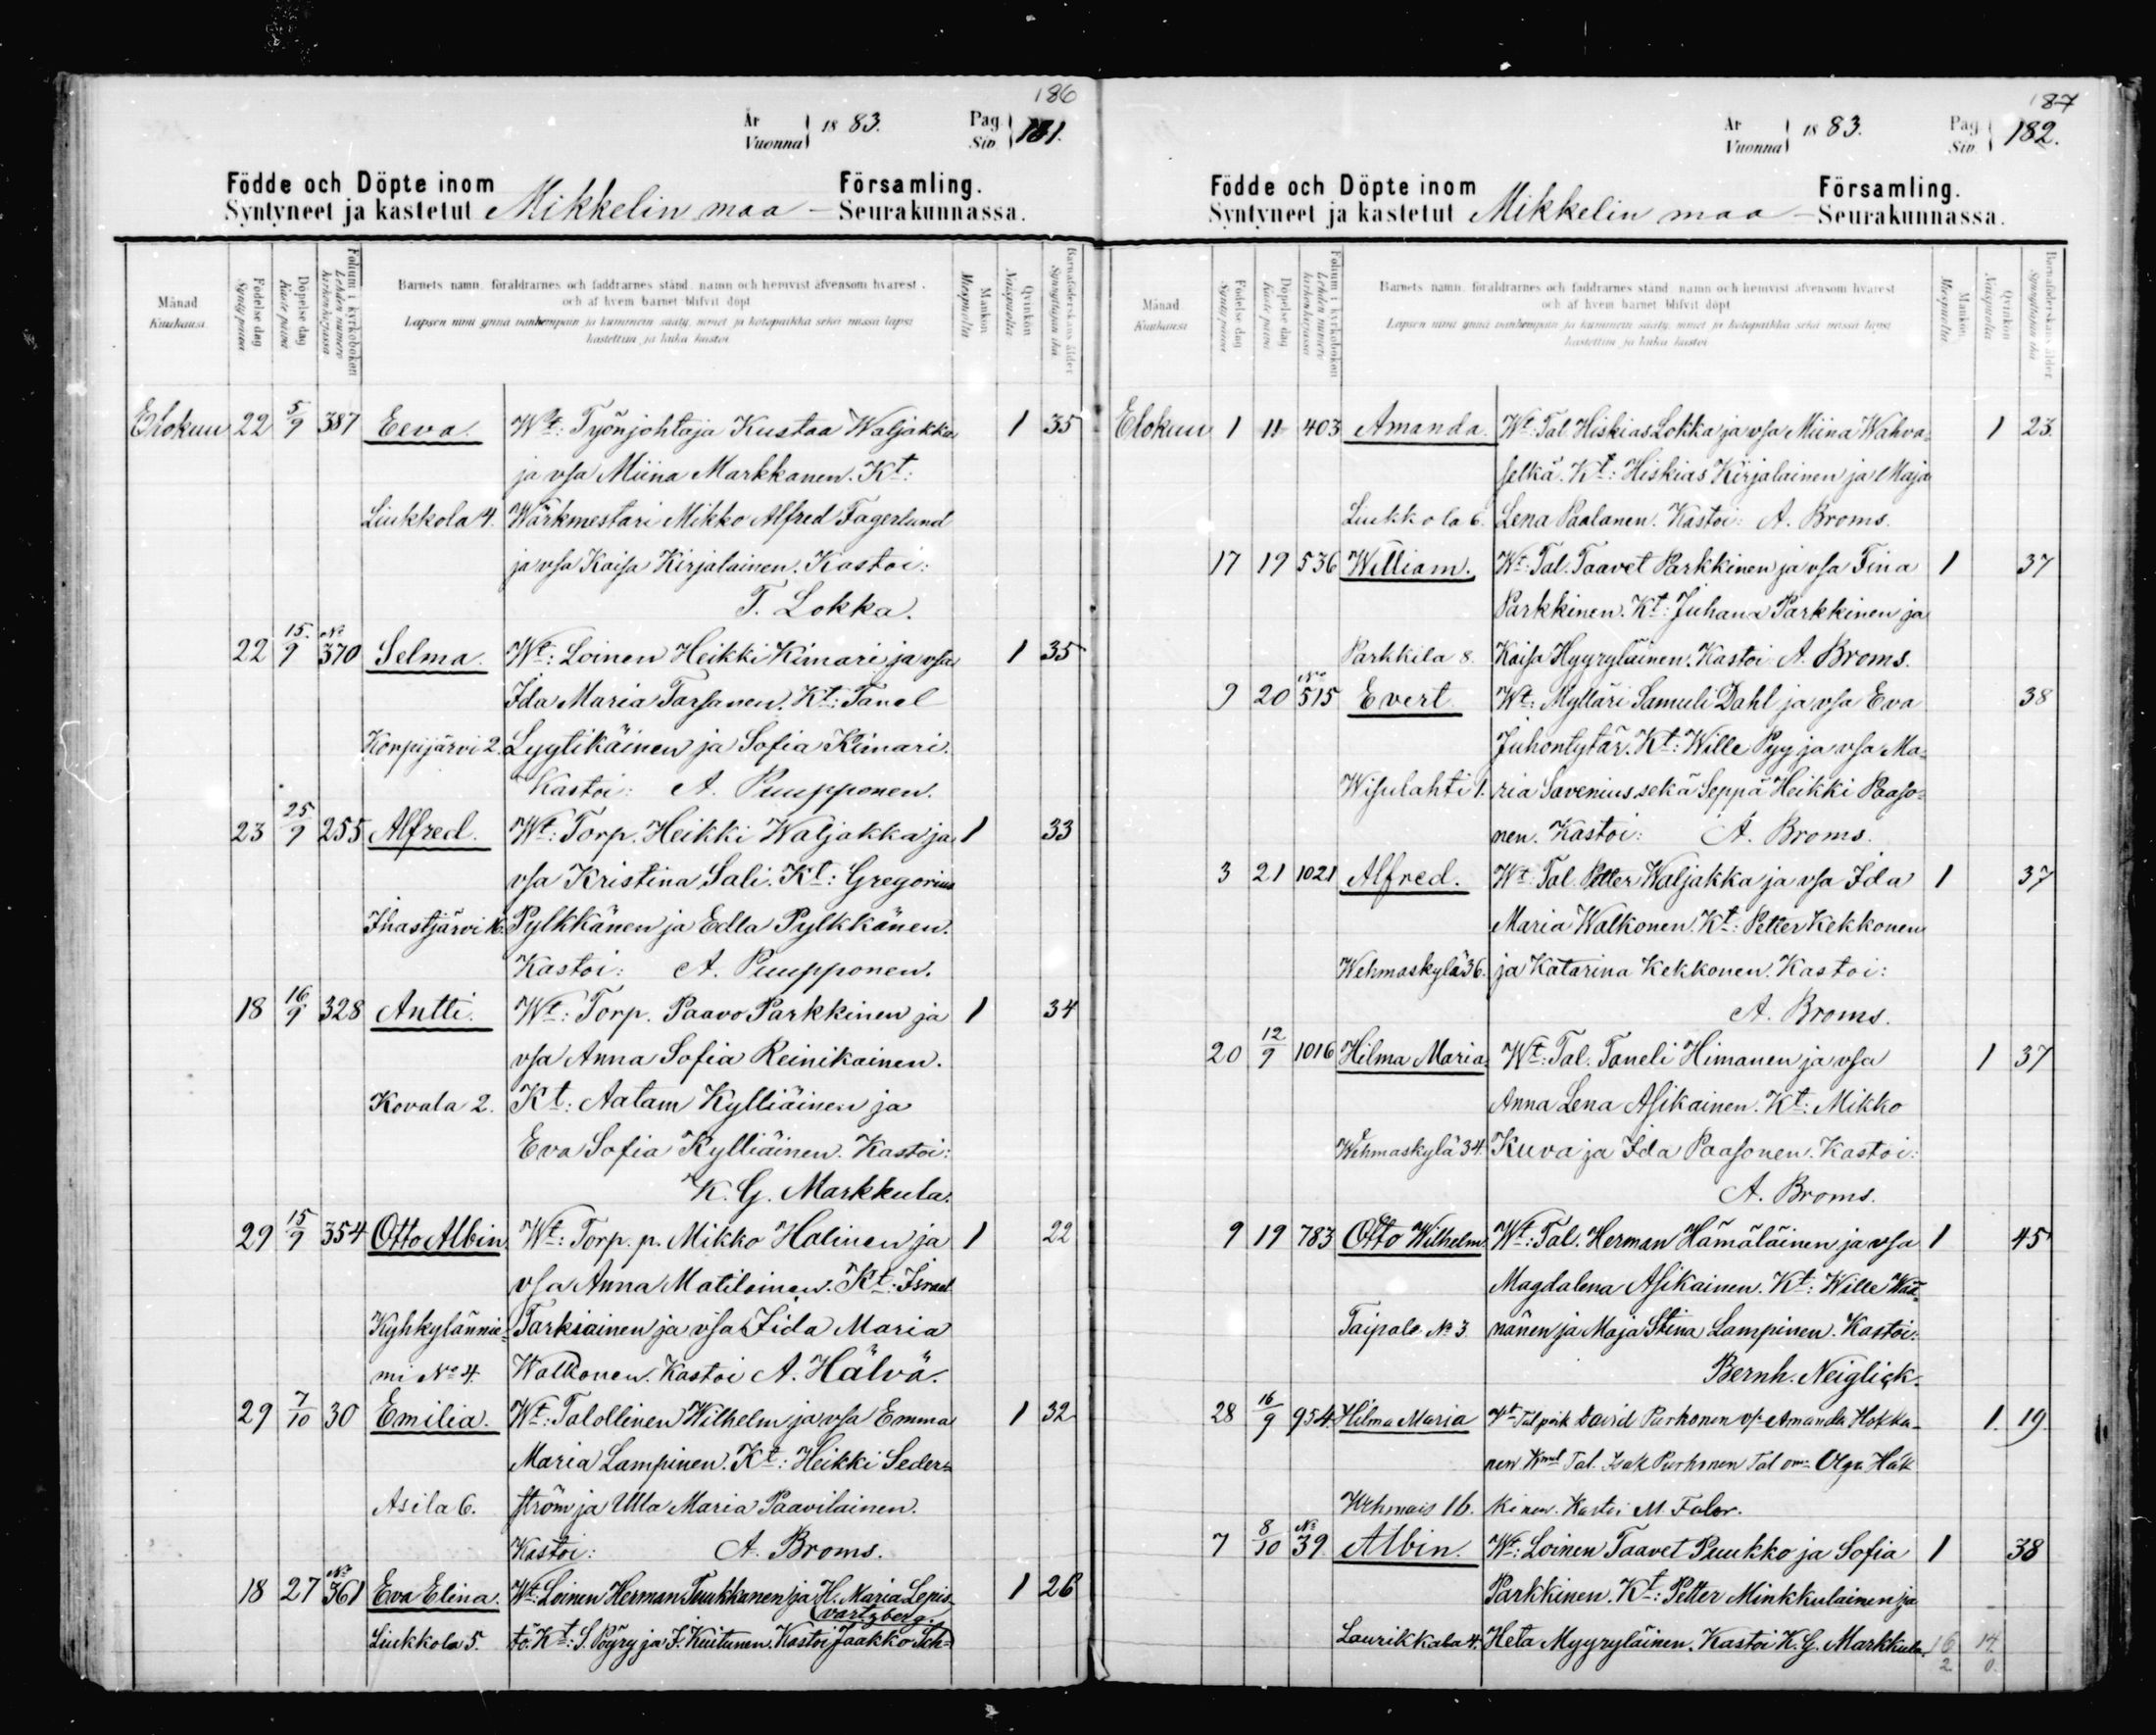 186
År
Vuonna
18 83.
Pag.
Siv.
181.
Födde och Döpte inom
Syntyneet ja kastetut
Mikkelin maa
Församling.
Seurakunnassa.
Månad
Kuukausi
Födelse dag
Synty päivä
Döpelse dag
Kaste päivä
Folium i kyrkoboken
Lehden numero kirkonkirjassa
Barnets namn, föräldrarnes och faddrarnes stånd, namn och hemvist äfvensom hvarest
och af hvem barnet blifvit döpt
Lapsen nimi ynnä vanhempain ja kummein sääty, nimet ja kotopaikka sekä missä lapsi
kastettiin ja kuka kastoi
Mankön
Miespuolta
Qvinkön
Naispuolta
Barnaföderskans ålder
Synnyttäjän ikä
Elokuu 22 5/9 387 Eeva. Wt: Työnjohtaja Kustaa Waljakka 1 35
ja vsa Miina Markkanen. Kt:
Liukkola 4. Wärkmestari Mikko Alfred Fagerlund
ja vsa Kaisa Kirjalainen. Kastoi:
T. Lokka.
22 15/9 No 370 Selma. Wt: Loinen Heikki Kimari ja vsa 1 35
Ida Maria Tarsanen. Kt: Tanel
Korpijärvi 2. Lyytikäinen ja Sofia Kimari.
Kastoi: A. Puupponen.
23 25/9 255 Alfred. Wt: Torp. Heikki Waljakka ja 1 33
vsa Kristina Sali. Kt: Gregorius
Ihastjärvi 16. Pylkkänen ja Edla Pylkkänen.
Kastoi: A. Puupponen.
18 16/9 328 Antti. Wt: Torp. Paavo Parkkinen ja 1 34
vsa Anna Sofia Reinikainen.
Kovala 2. Kt: Aatam Kylliäinen ja
Eva Sofia Kylliäinen. Kastoi:
K. G. Markkula.
29 15/9 354 Otto Albin. Wt: Torp. p. Mikko Halinen ja 1 22
vsa Anna Matilainen. Kt: Israel
Kyhkylännie- Tarkiainen ja vsa Iida Maria
mi No 4. Walkonen. Kastoi A. Hälvä.
29 7/10 30 Emilia. Wt: Talollinen Wilhelm ja vsa Emma 1 32
Maria Lampinen. Kt: Heikki Seder-
Asila 6. ström ja Ulla Maria Paavilainen.
Kastoi: A. Broms.
18 27 No 361 Eva Elina. Wt: Loinen Herman Tuukkanen ja H. Maria Lepis- 1 26
vartzberg.
Liukkola 5. tö. Kt: S. Pöyry ja I. Kuitunen. Kastoi Jaakko Sch-
187
År
Vuonna
18 83.
Pag.
Siv.
182.
Födde och Döpte inom
Syntyneet ja kastetut
Mikkelin maa
Församling.
Seurakunnassa.
Månad
Kuukausi
Födelse dag
Synty päivä
Döpelse dag
Kaste päivä
Folium i kyrkoboken
Lehden numero kirkonkirjassa
Barnets namn, föräldrarnes och faddrarnes stånd, namn och hemvist äfvensom hvarest
och af hvem barnet blifvit döpt
Lapsen nimi ynnä vanhempain ja kummein sääty, nimet ja kotopaikka sekä missä lapsi
kastettiin ja kuka kastoi
Mankön
Miespuolta
Qvinkön
Naispuolta
Barnaföderskans ålder
Synnyttäjän ikä
Elokuu 1 11 403 Amanda. Wt: Tal. Hiskias Lokka ja vsa Miina Wahva- 1 23.
selkä. Kt: Hiskias Kirjalainen ja Maja
Liukkola 6. Lena Paalanen. Kastoi: A. Broms.
17 19 536 William. Wt: Tal. Taavet Parkkinen ja vsa Fina 1 37
Parkkinen. Kt: Juhana Parkkinen ja
Parkkila 8. Kaisa Hyyryläinen. Kastoi A. Broms.
9 20 No 515 Evert. Wt: Mylläri Samuli Dahl ja vsa Eva 38
Juhontytär. Kt: Wille Pyy ja vsa Ma-
Wisulahti 1. ria Savenius sekä Seppä Heikki Paaso-
nen. Kastoi: A. Broms.
3 21 1021 Alfred. Wt: Tal. Petter Waljakka ja vsa Ida 1 37
Maria Walkonen. Kt: Petter Kekkonen
Wehmaskylä 36. ja Katarina Kekkonen. Kastoi:
A. Broms.
20 12/9 1016 Hilma Maria. Wt: Tal. Taneli Himanen ja vsa 1 37
Anna Lena Asikainen. Kt: Mikko
Wehmaskylä 34. Kuva ja Ida Paasonen. Kastoi:
A. Broms.
9 19 783 Otto Wilhelm. Wt: Tal. Herman Hämäläinen ja vsa 1 45
Magdalena Asikainen. Kt: Wille Wää-
Taipale No 3. nänen ja Maja Stina Lampinen. Kastoi:
Bernh. Neiglick.
28 16/9 954 Hilma Maria Wt Tal poik David Purhonen vs Amanda Hokka- 1. 19.
nen Kmt Tal. Isak Purhonen Tal Olga Häk
Wehmais 16. kinen. Kastoi M. Faler.
7 8/10 No 39 Albin. Wt: Loinen Taavet Puukko ja Sofia 1 38
Parkkinen. Kt: Petter Minkkulainen ja
Laurikkala 4. Heta Myyryläinen. Kastoi K. G. Markkula. 16 14.
2 0.